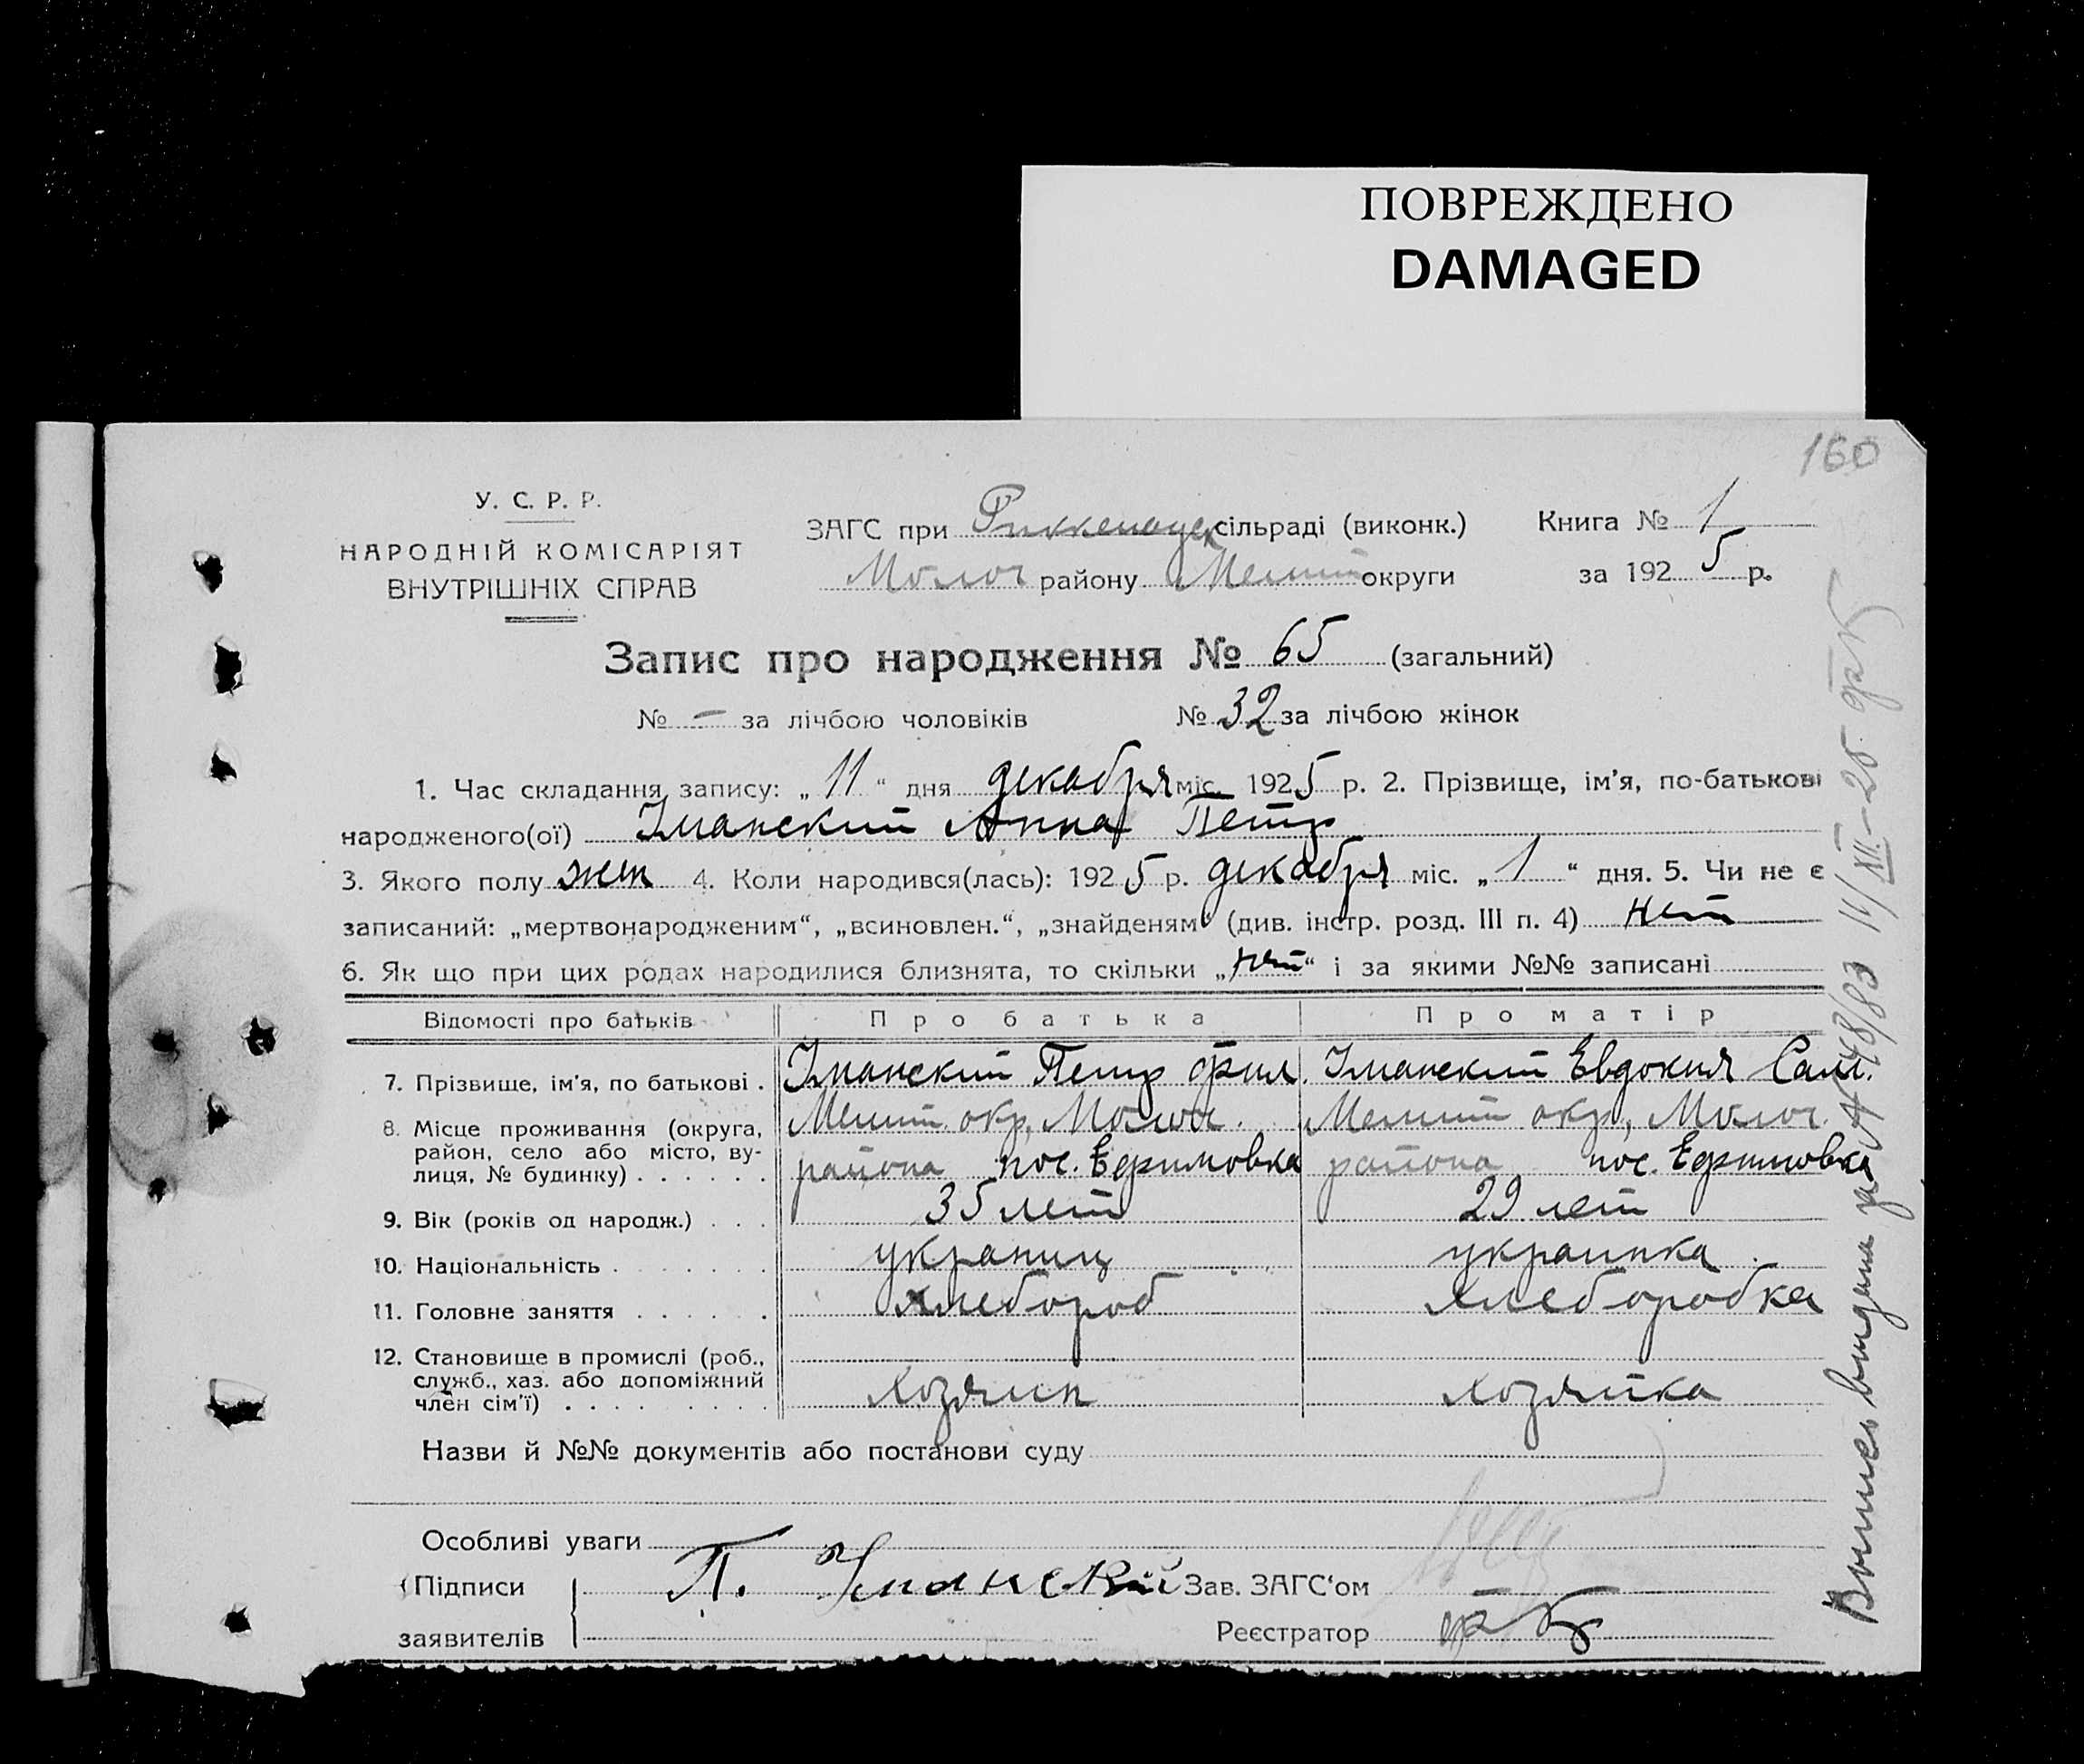 ПОВРЕЖДЕНО
DAMAGED
160
У. С. Р. Р.
НАРОДНІЙ КОМІСАРІЯТ
ВНУТРІШНІХ СПРАВ
ЗАГС при сільраді (виконк.)
Молоч району Мелит округи
Книга № 1
за 1925 р.
Запис про народження № 65 (загальний)
№ – за лічбою чоловіків № 32 за лічбою жінок
1. Час складання запису: „11“ дня декабря міс. 1925 р. 2. Прізвище, ім'я, по-батькові
народженого(ої) Уманский Анна Петр
3. Якого полу жен 4. Коли народився(лась): 1925 р. декабря міс. „1“ дня. 5. Чи не є
записаний: „мертвонародженим“, „всиновлен.“, „знайденям“ (див. інстр. розд. III п. 4) нет
6. Як що при цих родах народилися близнята, то скільки „нет“ і за якими №№ записані
Відомості про батьків Про батька Про матір
7. Прізвище, ім'я, по батькові . Уманский Петр Фил. Уманский Евдокия Сам.
8. Місце проживання (округа, Мелит. окр, Молоч. Мелит окр, Молоч.
район, село або місто, ву- района пос. Ефимовка района пос. Ефимовка
лиця, № будинку) . . . . . .
9. Вік (років од народж.) . . . 35 лет 29 лет
10. Національність . . . . . . . украинц украинка
11. Головне заняття . . . . . . хлебороб хлеборобка
12. Становище в промислі (роб.,
служб., хаз. або допоміжний
член сім'ї) . . . . . . . . . хозяин хозяйка
Назви й №№ документів або постанови суду
Особливі уваги
Підписи П. Уманский Зав. ЗАГС‘ом
заявителів Реєстратор
Выпись выдана за № 48/83 11/XII–25